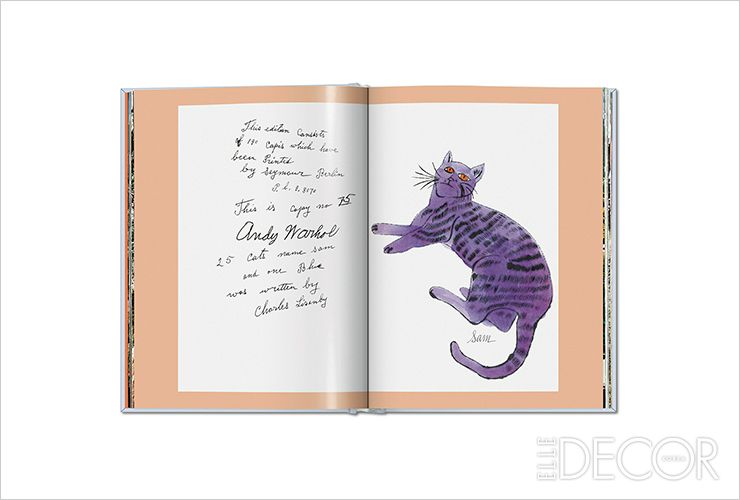 This edition Consists
of 190 Capis which have
been Printed
by Seymour Berlin
P. L. 8, 8170
This is copy no 75
Andy Warhol
25 Cats name sam
and one Blue
was written by
Charles Lisanby
Sam
ELLE DECOR
KOREA